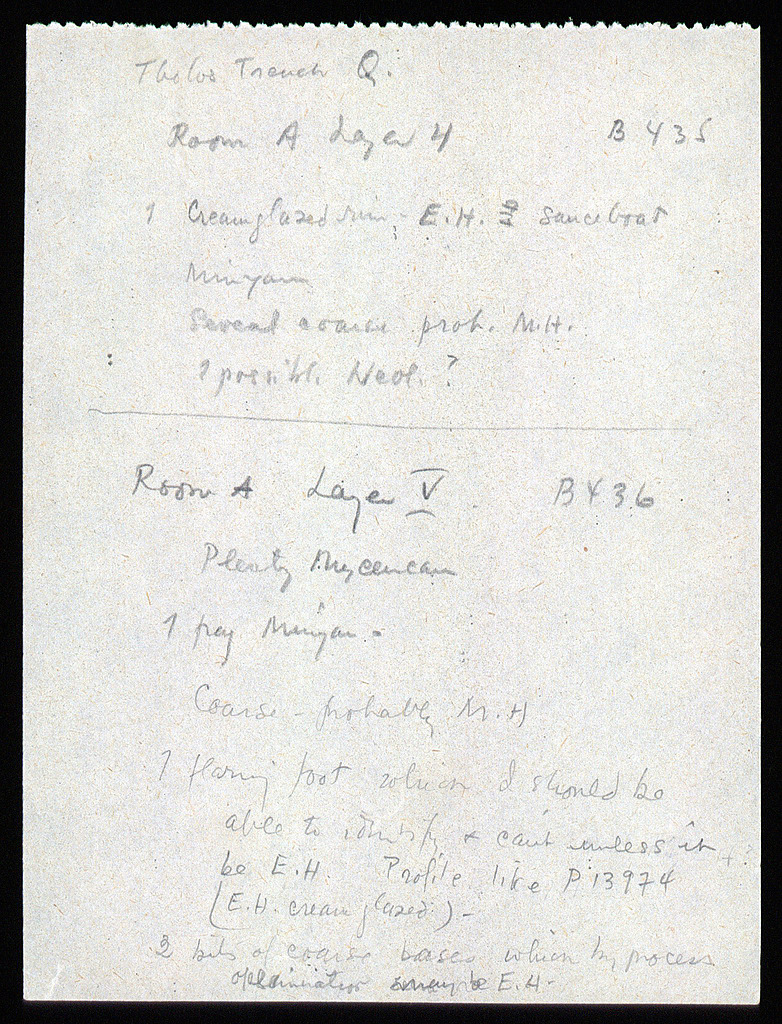 Tholos Trench Q.
Room A Layer 4 B 435
1 Cream glazed rim - E.H. sauceboat
Minyan
Several coarse prob. M.H.
1 possibl. Neol. ?
Room A Layer V B 436
Plenty Mycenean
1 frag Minyan -
Coarse - probably M.H
1 flaring foot which I should be
able to identify + can't unless it
be E.H Profile like P 13974
(E.H. cream glazed.) -
2 bits of coarse bases which by process
of elimination may be E.H -